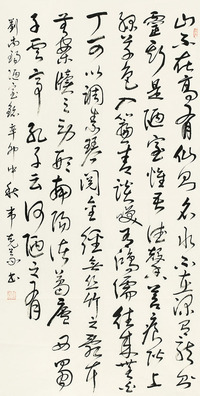 山不在高有仙則名水不在深有龍則
靈斯是陋室惟吾德馨苔痕階上
綠草色入簾青談笑有鴻儒往來無白
丁可以調素琴閱金經無絲竹之亂耳
無案牘之勞形南陽諸葛廬西蜀
子雲亭孔子云何陋之有
劉禹錫陋室銘辛卯中秋